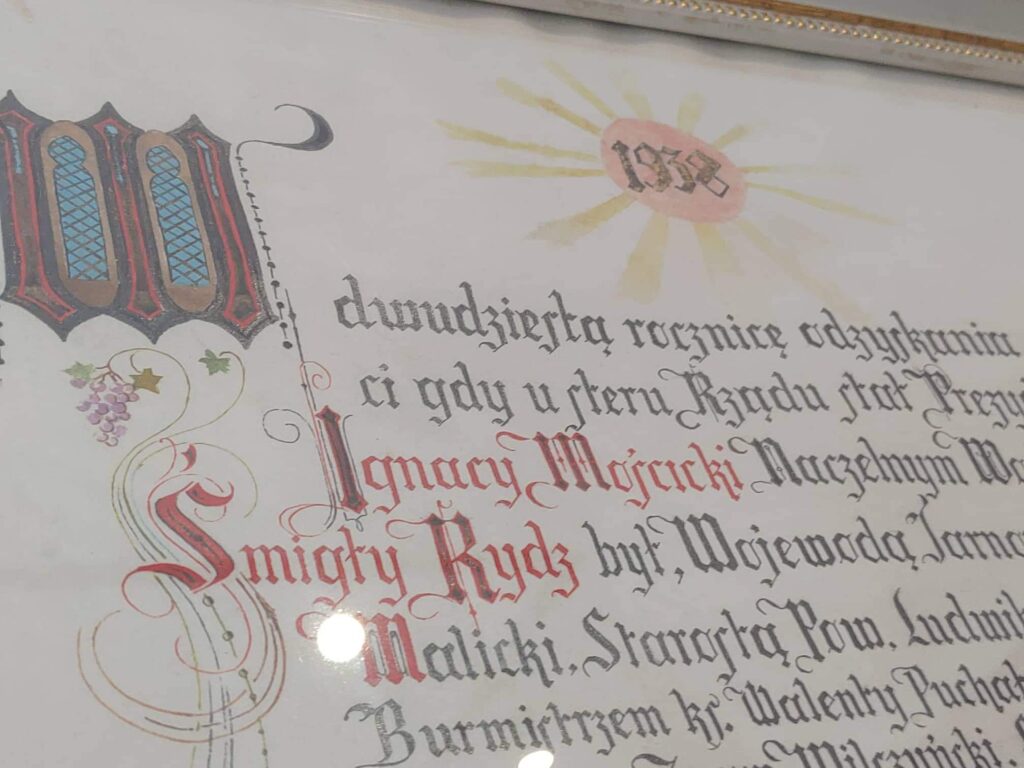 1938
W dwudziestą rocznicę odzyskania
ci gdy u steru Rządu stał
Ignacy Mojścicki Naczelnym
Śmigły Rydz był, Wojewodą
Malicki, Starostą Pow. Ludwik
Burmistrzem ks. Walenty
Wilczyński,